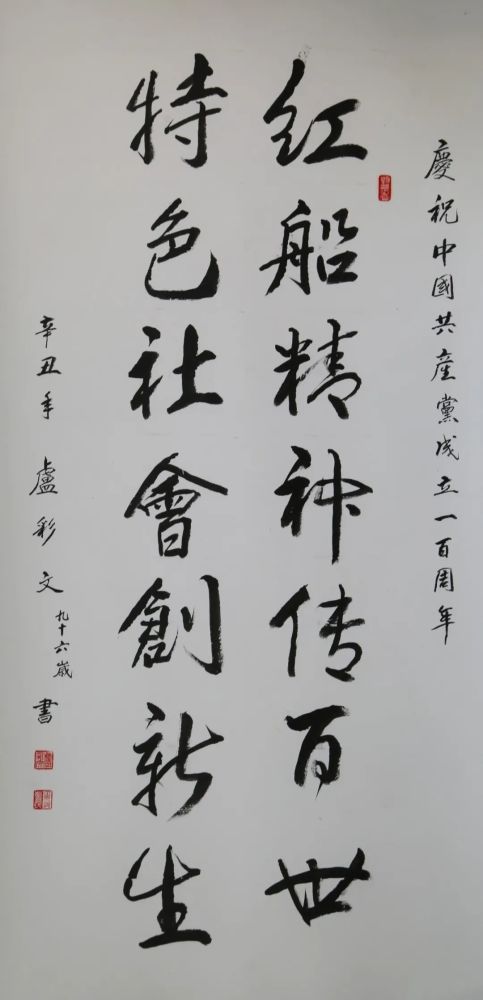 慶祝中國共產黨成立一百周年
红船精神传百世
特色社會創新生
辛丑年 盧彩文 九十六歲 書